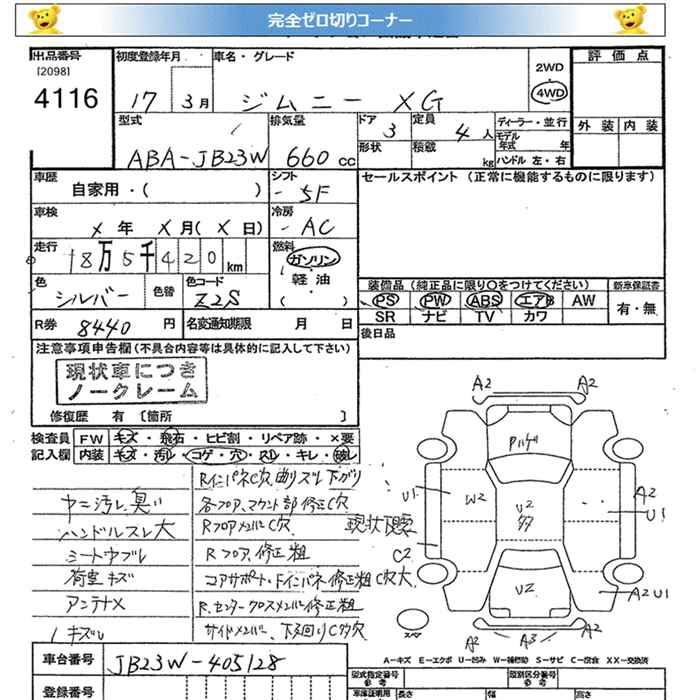 完全ゼロ切りコーナー
出品番号 初度登録年月 車名・グレード 2WD 評価点
[2098]
4116 17 3月 ジムニー XG 4WD
型式 排気量 ドア 定員 ディーラー・並行 外装 内装
3 4人 モデル年式 年
ABA-JB23W 660cc 形状 積載 kg ハンドル 左・右
車歴 シフト セールスポイント (正常に機能するものに限ります)
自家用・( ) 5F
車検 冷房
x年 x月(x日) AC
走行 燃料
18万5千420km ガソリン
軽油
色 色替 色コード ( ) 装備品 (純正品に限り〇をつけてください) 新車保証書
シルバー Z2S PS PW ABS エアB AW 有・無
R券 8440円 名変通知期限 月 日 SR ナビ TV カワ
注意事項申告欄(不具合内容等は具体的に記入して下さい) 後日品
現状車につき
ノークレーム
修復歴 有 [箇所 ]
検査員 FW キズ・飛石・ヒビ割・リペア跡・×要
記入欄 内装 キズ・汚れ・コゲ・穴・スレ・キレ・破レ
RインパネC穴、曲りズレ下がり
ヤニ汚レ臭い 各フロア、マウント部修正C穴
ハンドルスレ大 RフロアメンバーC穴 現状下見要
シートウブレ Rフロア、修正粗
荷室キズ コアサポート・Fインパネ修正粗C穴大
アンテナX R、センタークロスメンバー修正粗
1キズレ サイドメンバー、下廻りC穴多
A2 A2
Pハゲ
U1 W2 U2 多 A2 U1
C2
U2 A2 U1
スペア A2 A3 A2
A-キズ E-エクボ U-凹み W-補修跡 S-サビ C-腐食 XX-交換済
車台番号 JB23W-405128
型式指定番号 参考 類別区分番号 参考
登録番号 車体証明用 参考 長さ 幅 高さ